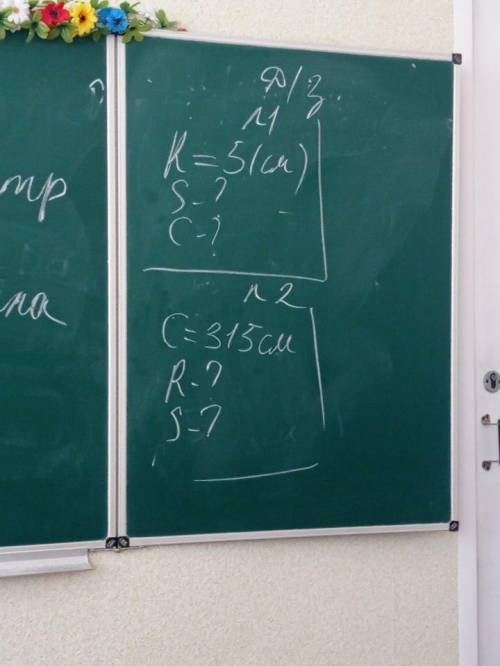 тр
на
Д/з.
№1
R = 5(см)
S - ?
C - ?
№2
C = 315см
R - ?
S - ?